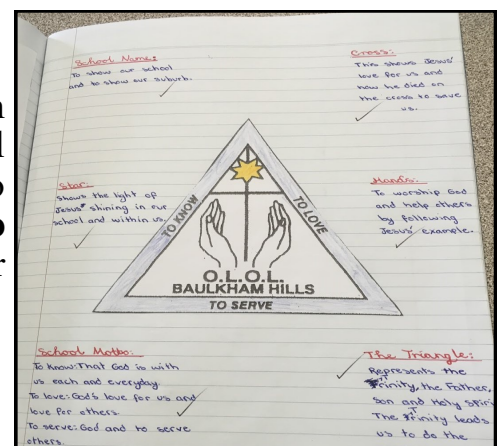 School Name:
To show our school
and to show our suburb.
Cross:
This shows Jesus'
love for us and
how he died on
the cross to save
us.
Star:
Shows the light of
Jesus' shining in our
school and within us.
Hands:
To worship God
and help others
by following
Jesus' example.
TO KNOW
TO LOVE
O.L.O.L.
BAULKHAM HILLS
TO SERVE
School Motto:
To know: That God is with
us each and everyday.
To love: God's love for us and
love for others.
To serve: God and to serve
others.
The Triangle:
Represents the
Trinity, the Father,
Son and Holy
The Trinity leads
us to do the